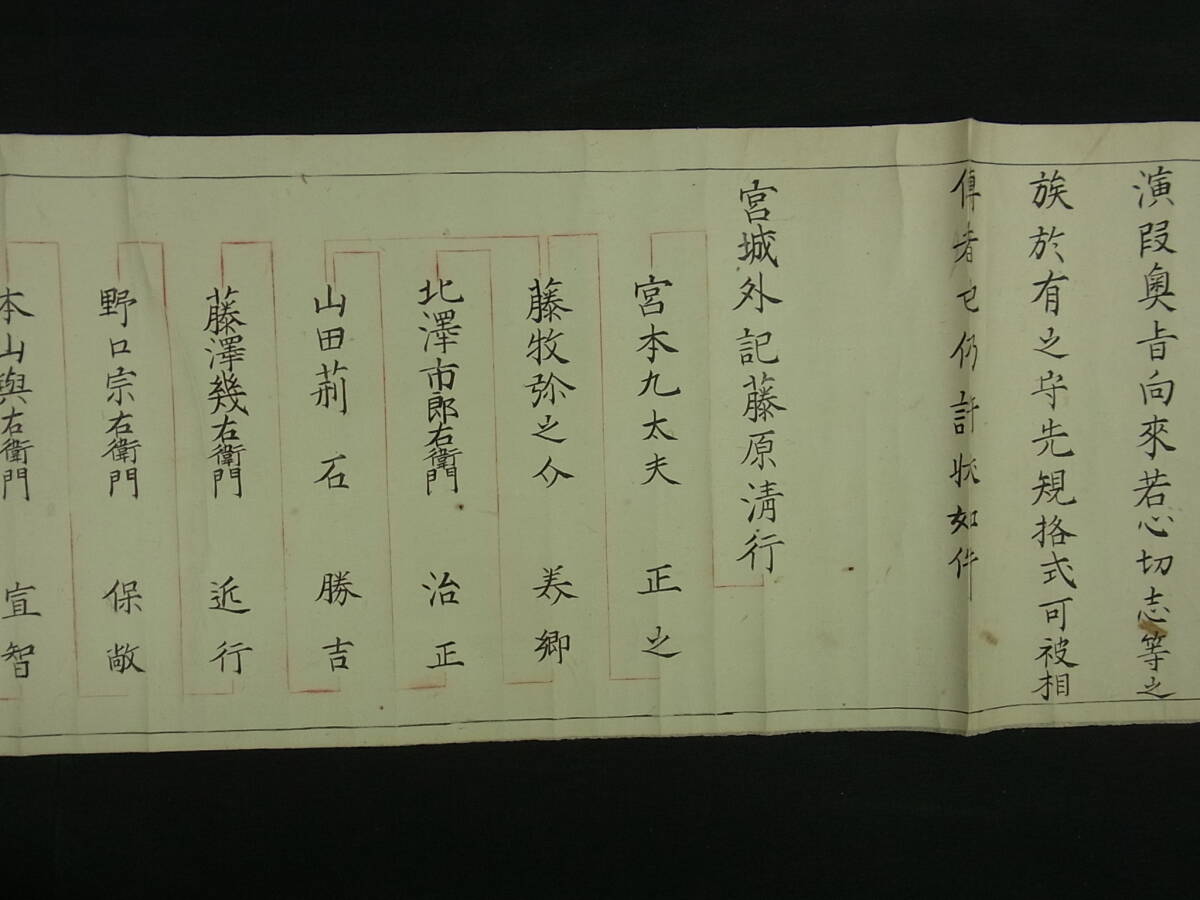 演段奥旨向來若心切志等之
族於有之守先規格式可被相
傳者也仍許状如件
宮城外記藤原清行
宮本九太夫 正之
藤牧弥之介 美郷
北澤市郎右衛門 治正
山田荊石 勝吉
藤澤幾右衛門 近行
野口宗右衛門 保敞
本山與右衛門 宣智